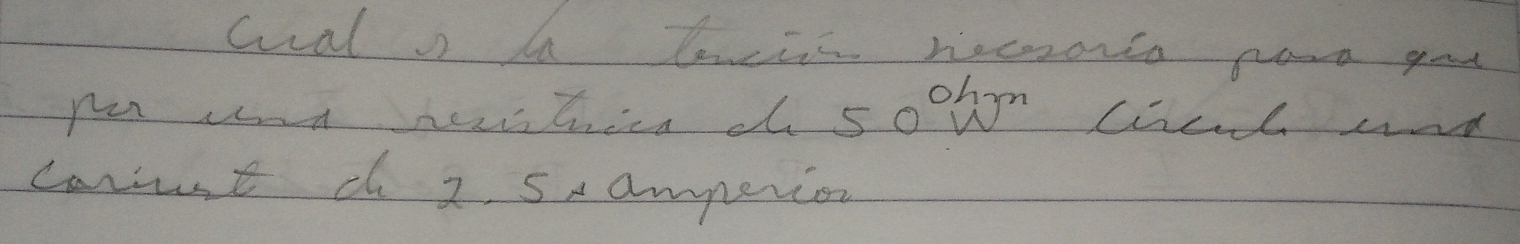 Cual es la tención necesaria para que
por una resistencia de 50 ohm W circule una
corriente de 2.5 amperios